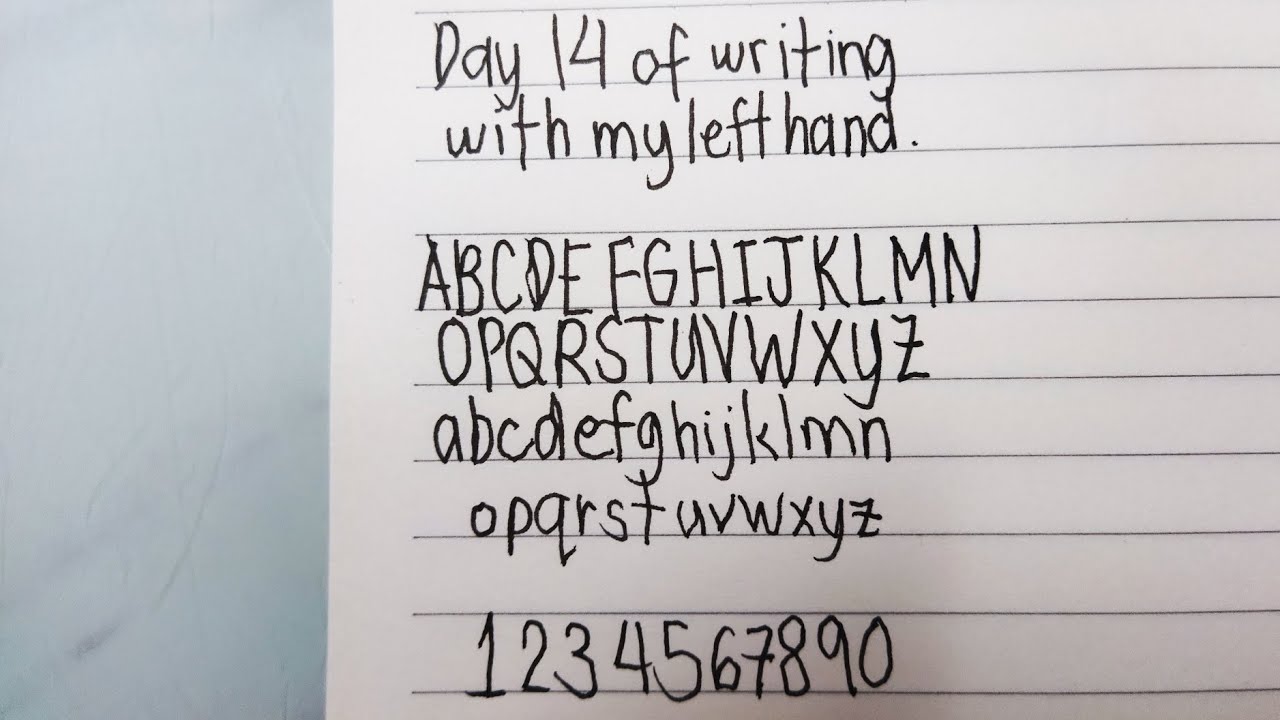 Day 14 of writing
with my left hand.
ABCDEFGHIJKLMN
OPQRSTUVWXYZ
abcdefghijklmn
opqrstuvwxyz
1234567890